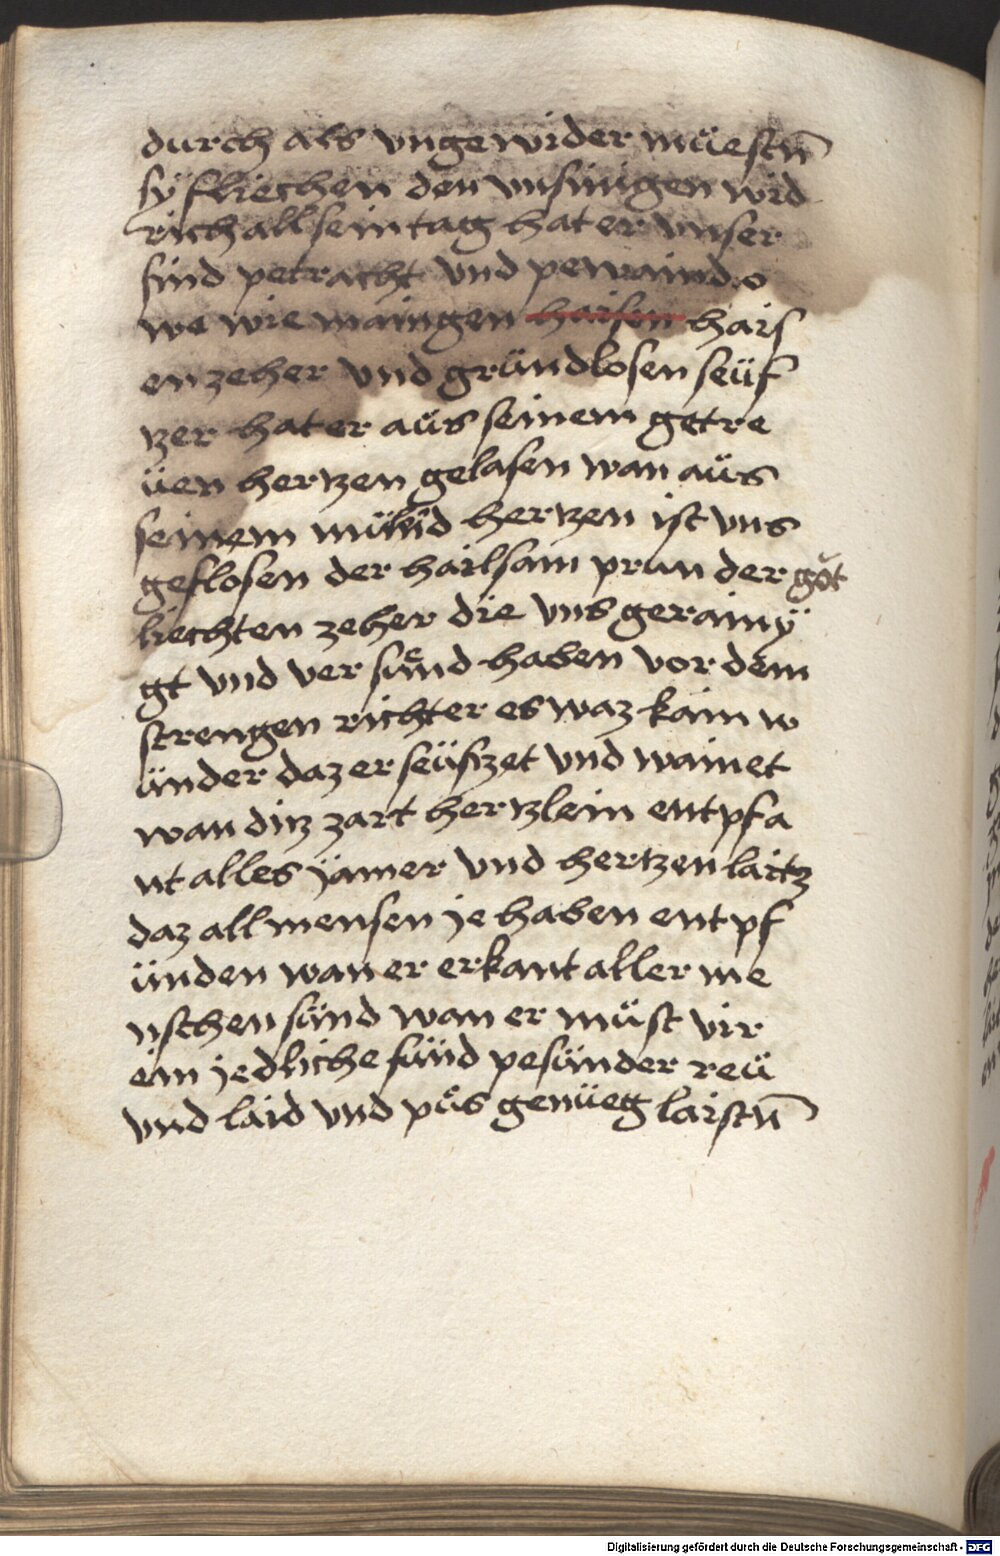 durch als vngewider müestn̄
sÿ fliechen den vnsinigen wid
rich all sein tag hat er vnser
sind petracht vnd pewaind o
we wie mainigen haisin hais
en zeher vnd gründlosen seüf
tzer hat er aüs seinem getre
üen hertzen gelasen wan aüs
seinem hertzen ist vns
geflosen der hailsam prun der göt
liechten zeher die vns gerainÿ
gt vnd ver sünd haben vor dem
strengen richter es waz kain w
ünder daz er seüfzet vnd wainet
wan ditz zart hertzlein entpfa
nt alles jamer vnd hertzen laitz
daz all mensen je haben entpf
ünden wan er erkant aller me
nschen sünd wan er müst vir
ein jedliche sünd pesünder reü
vnd laid vnd püs genüeg laistn̄
Digitalisierung gefördert durch die Deutsche Forschungsgemeinschaft - DFG